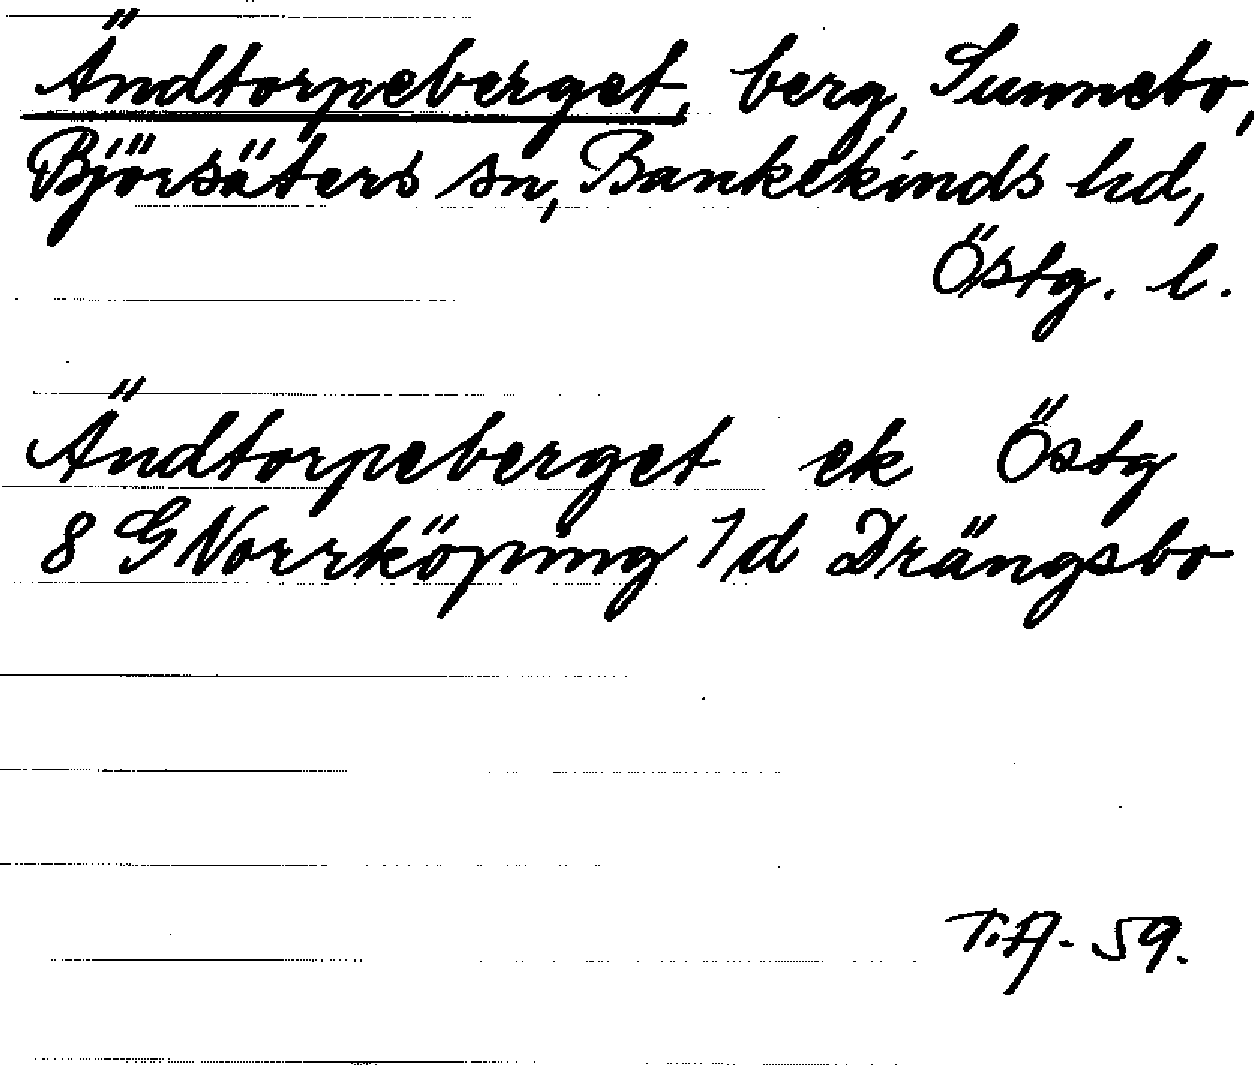 Ändtorpeberget, berg, Sunnebo,
Björsäters sn, Bankekinds hd,
Östg. l.
Ändtorpeberget ek Östg
8 G Norrköping 7d Drängsbo
T.A. 59.